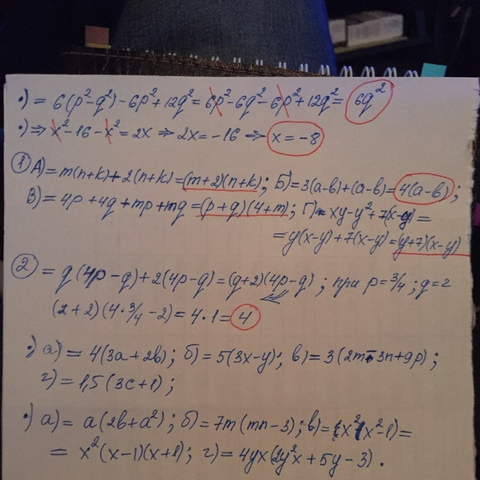 •) = 6(p²-q²)-6p²+12q² = 6p²-6q²-6p²+12q² = 6q²
•) ⇒ x²-16-x² = 2x ⇒ 2x = -16 ⇒ x = -8
① А) = m(n+k)+2(n+k) = (m+2)(n+k); Б) = 3(a-b)+(a-b) = 4(a-b);
В) = 4p+4q+mp+mq = (p+q)(4+m); Г) = xy-y²+7(x-y) =
= y(x-y)+7(x-y) = (y+7)(x-y)
② = q(4p-q)+2(4p-q) = (q+2)(4p-q); при p = 3/4; q = 2
(2+2)(4·3/4-2) = 4·1 = 4
•) а) = 4(3a+2b); б) = 5(3x-y); в) = 3(2m-3n+9p);
г) = 1,5(3c+1);
•) а) = a(2b+a²); б) = 7m(mn-3); в) = x²(x²-1) =
= x²(x-1)(x+1); г) = 4yx(2y²x+5y-3).